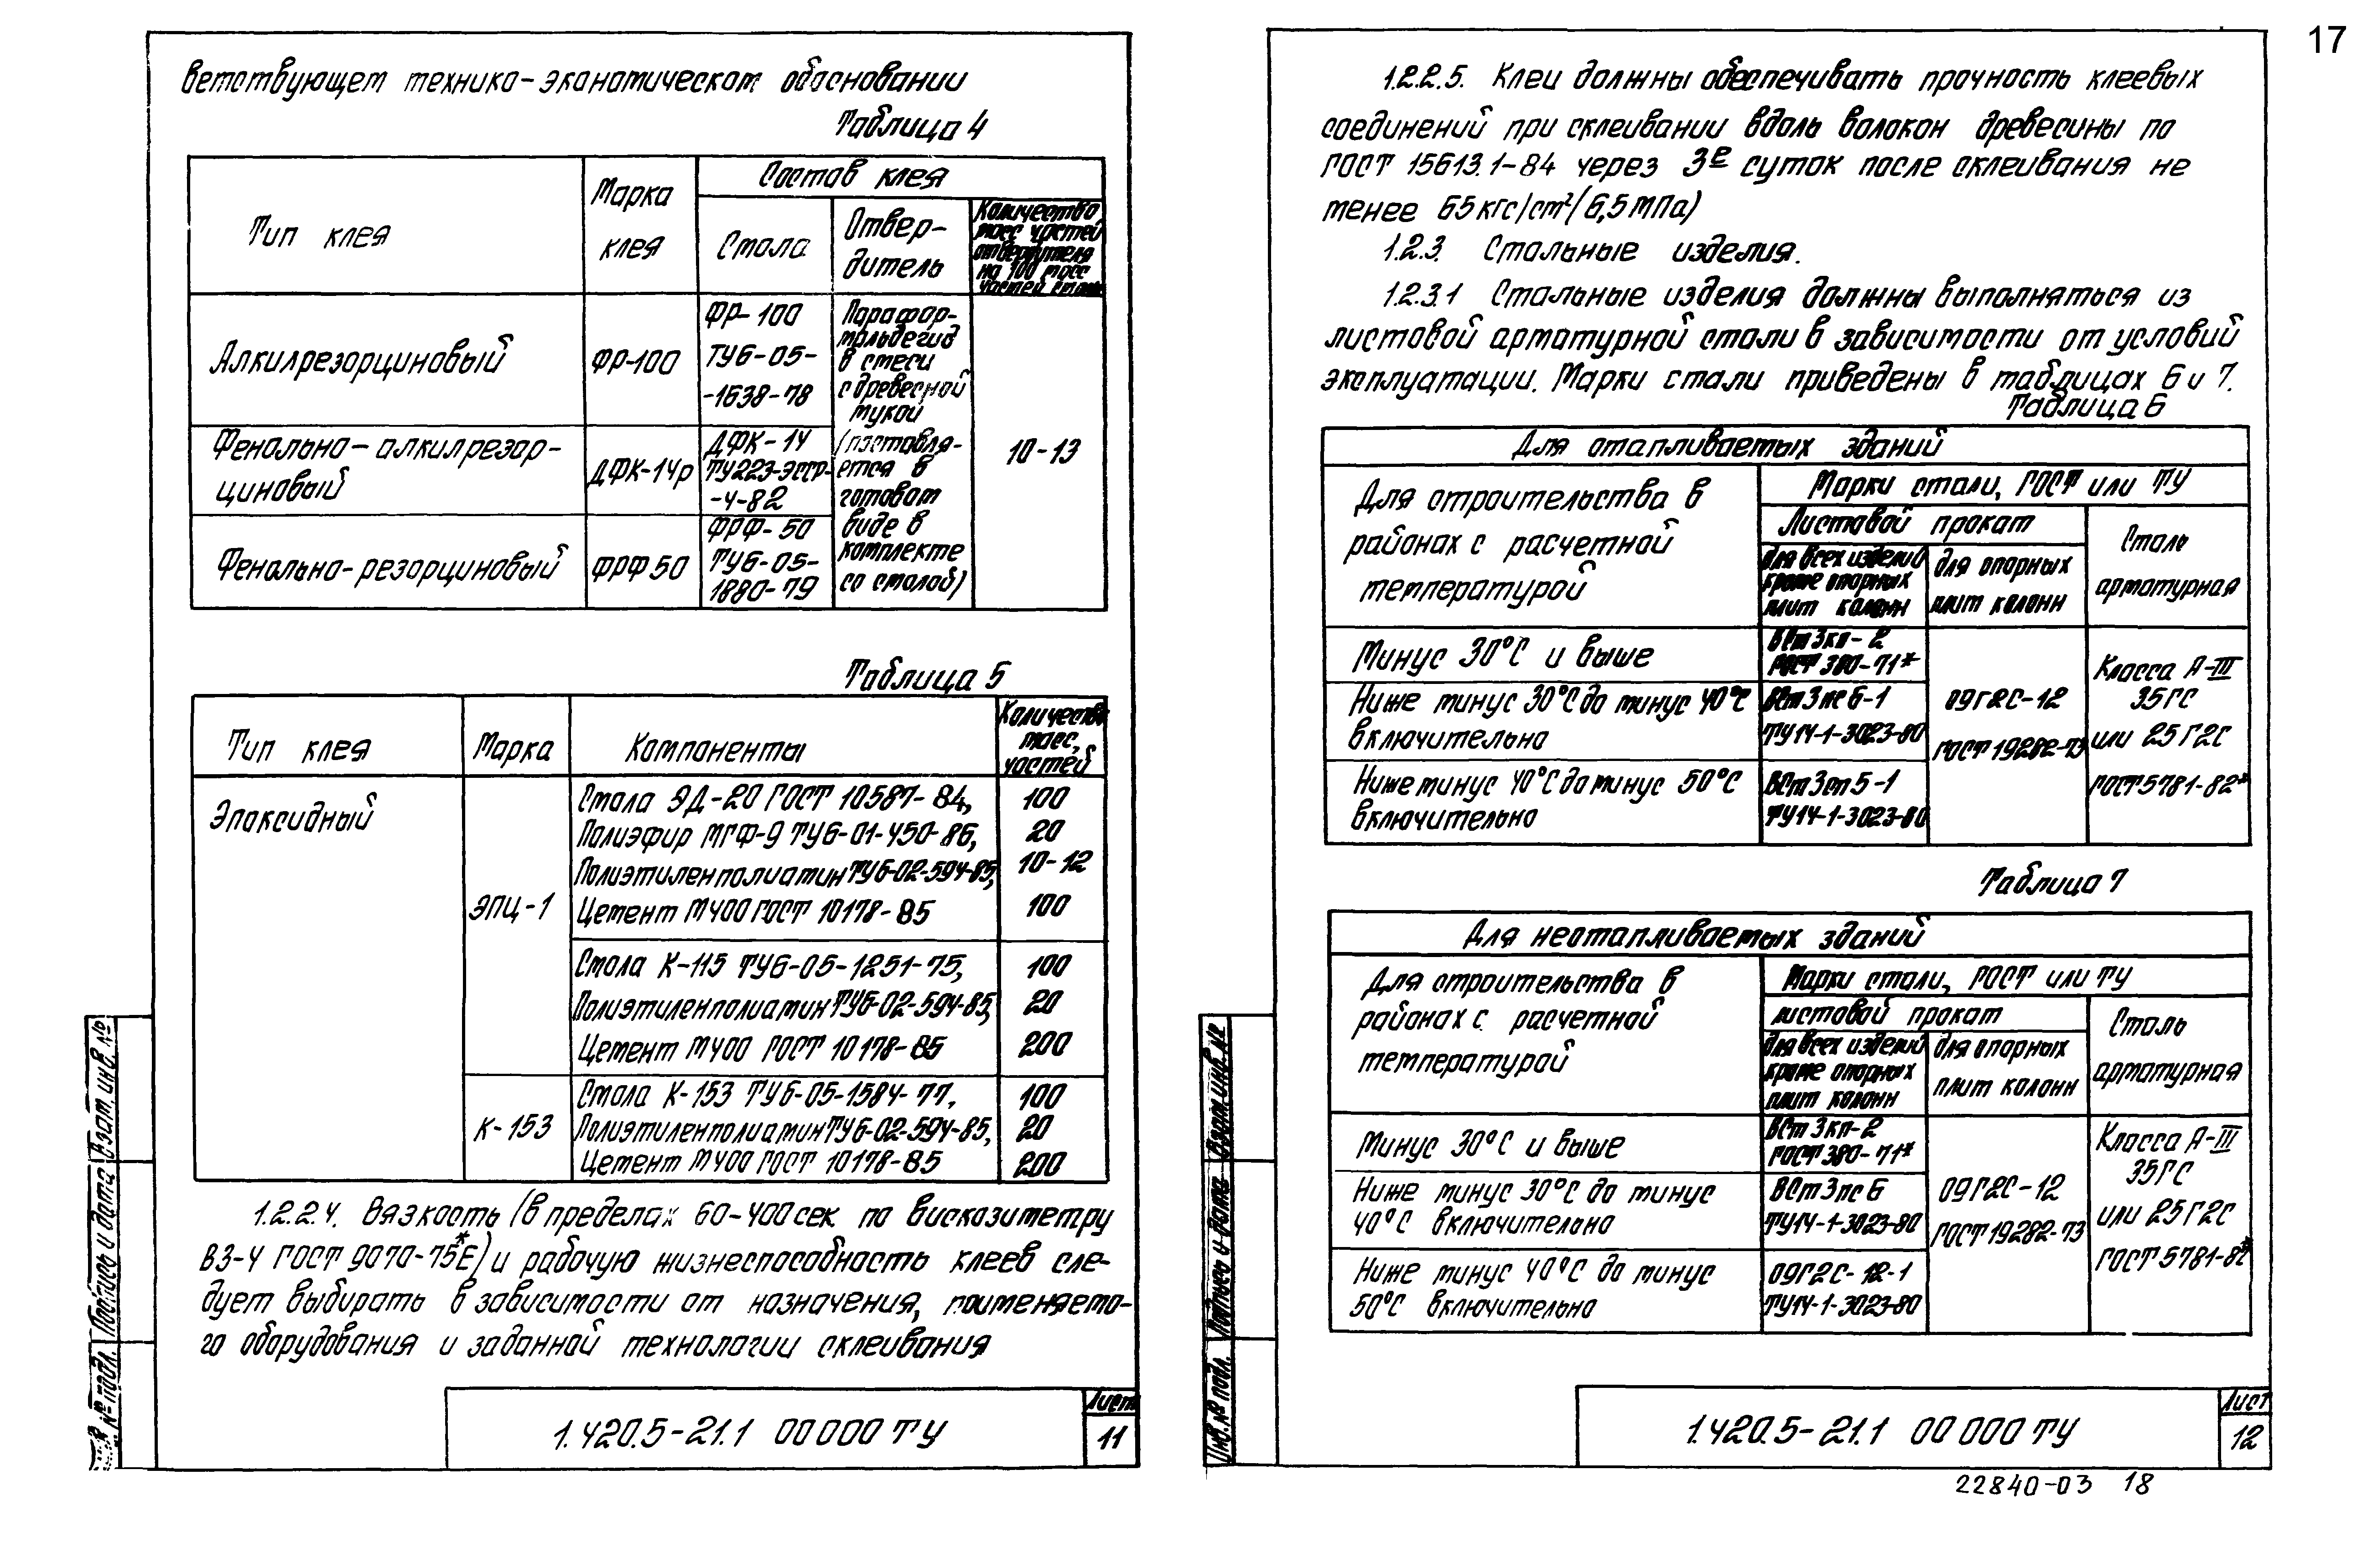 17
ветствующем технико-экономическом обосновании
Таблица 4
Тип клея
Марка
клея
Состав клея
Смола
Отвер-
дитель
Количество
масс частей
отвердителя
на 100 масс
частей смолы
Алкилрезорциновый
ФР-100
ФР-100
ТУ6-05-
-1638-78
Парафор-
мальдегид
в смеси
с древесной
мукой
(поставля-
ется в
готовом
виде в
комплекте
со смолой)
10-13
Фенольно-алкилрезор-
циновый
ДФК-14р
ДФК-14
ТУ223-ЭССР-
-4-82
Фенольно-резорциновый
ФРФ50
ФРФ-50
ТУ6-05-
1880-79
Таблица 5
Тип клея
Марка
Компоненты
Количество
масс,
частей
Эпоксидный
ЭПЦ-1
Смола ЭД-20 ГОСТ 10587-84, 100
Полиэфир МГФ-9 ТУ6-01-450-86, 20
Полиэтиленполиамин ТУ6-02-594-85, 10-12
Цемент М400 ГОСТ 10178-85 100
Смола К-115 ТУ6-05-1251-75, 100
Полиэтиленполиамин ТУ6-02-594-85, 20
Цемент М400 ГОСТ 10178-85 200
К-153
Смола К-153 ТУ6-05-1584-77, 100
Полиэтиленполиамин ТУ6-02-594-85, 20
Цемент М400 ГОСТ 10178-85 200
1.2.2.4. Вязкость (в пределах 60-400 сек по вискозиметру
ВЗ-4 ГОСТ 9070-75*Е) и рабочую жизнеспособность клеев сле-
дует выбирать в зависимости от назначения, применяемо-
го оборудования и заданной технологии склеивания
Взам. инв. №
Подпись и дата
№ подл.
1.420.5-21.1 00 000 ТУ
Лист
11
1.2.2.5. Клеи должны обеспечивать прочность клеевых
соединений при склеивании вдоль волокон древесины по
ГОСТ 15613.1-84 через 3е суток после склеивания не
менее 65 кгс/см²(6,5 МПа)
1.2.3. Стальные изделия.
1.2.3.1 Стальные изделия должны выполняться из
листовой арматурной стали в зависимости от условий
эксплуатации. Марки стали приведены в таблицах 6 и 7.
Таблица 6
Для отапливаемых зданий
Для строительства в
районах с расчетной
температурой
Марки стали, ГОСТ или ТУ
Листовой прокат
для всех изделий
кроме опорных
плит колонн
для опорных
плит колонн
Сталь
арматурная
Минус 30°С и выше
ВСт3кп-2
ГОСТ 380-71*
Ниже минус 30°С до минус 40°С
включительно
ВСт3пс6-1
ТУ14-1-3023-80
Ниже минус 40°С до минус 50°С
включительно
ВСт3сп5-1
ТУ14-1-3023-80
09Г2С-12
ГОСТ 19282-73
Класса А-III
35ГС
или 25Г2С
ГОСТ5781-82*
Таблица 7
Для неотапливаемых зданий
Для строительства в
районах с расчетной
температурой
Марки стали, ГОСТ или ТУ
листовой прокат
для всех изделий
кроме опорных
плит колонн
для опорных
плит колонн
Сталь
арматурная
Минус 30°С и выше
ВСт3кп-2
ГОСТ 380-71*
Ниже минус 30°С до минус
40°С включительно
ВСт3пс6
ТУ14-1-3023-80
Ниже минус 40°С до минус
50°С включительно
09Г2С-12-1
ТУ14-1-3023-80
09Г2С-12
ГОСТ19282-73
Класса А-III
35ГС
или 25Г2С
ГОСТ5781-82*
Взам. инв. №
Подпись и дата
Инв. № подл.
1.420.5-21.1 00 000 ТУ
Лист
12
22840-03 18